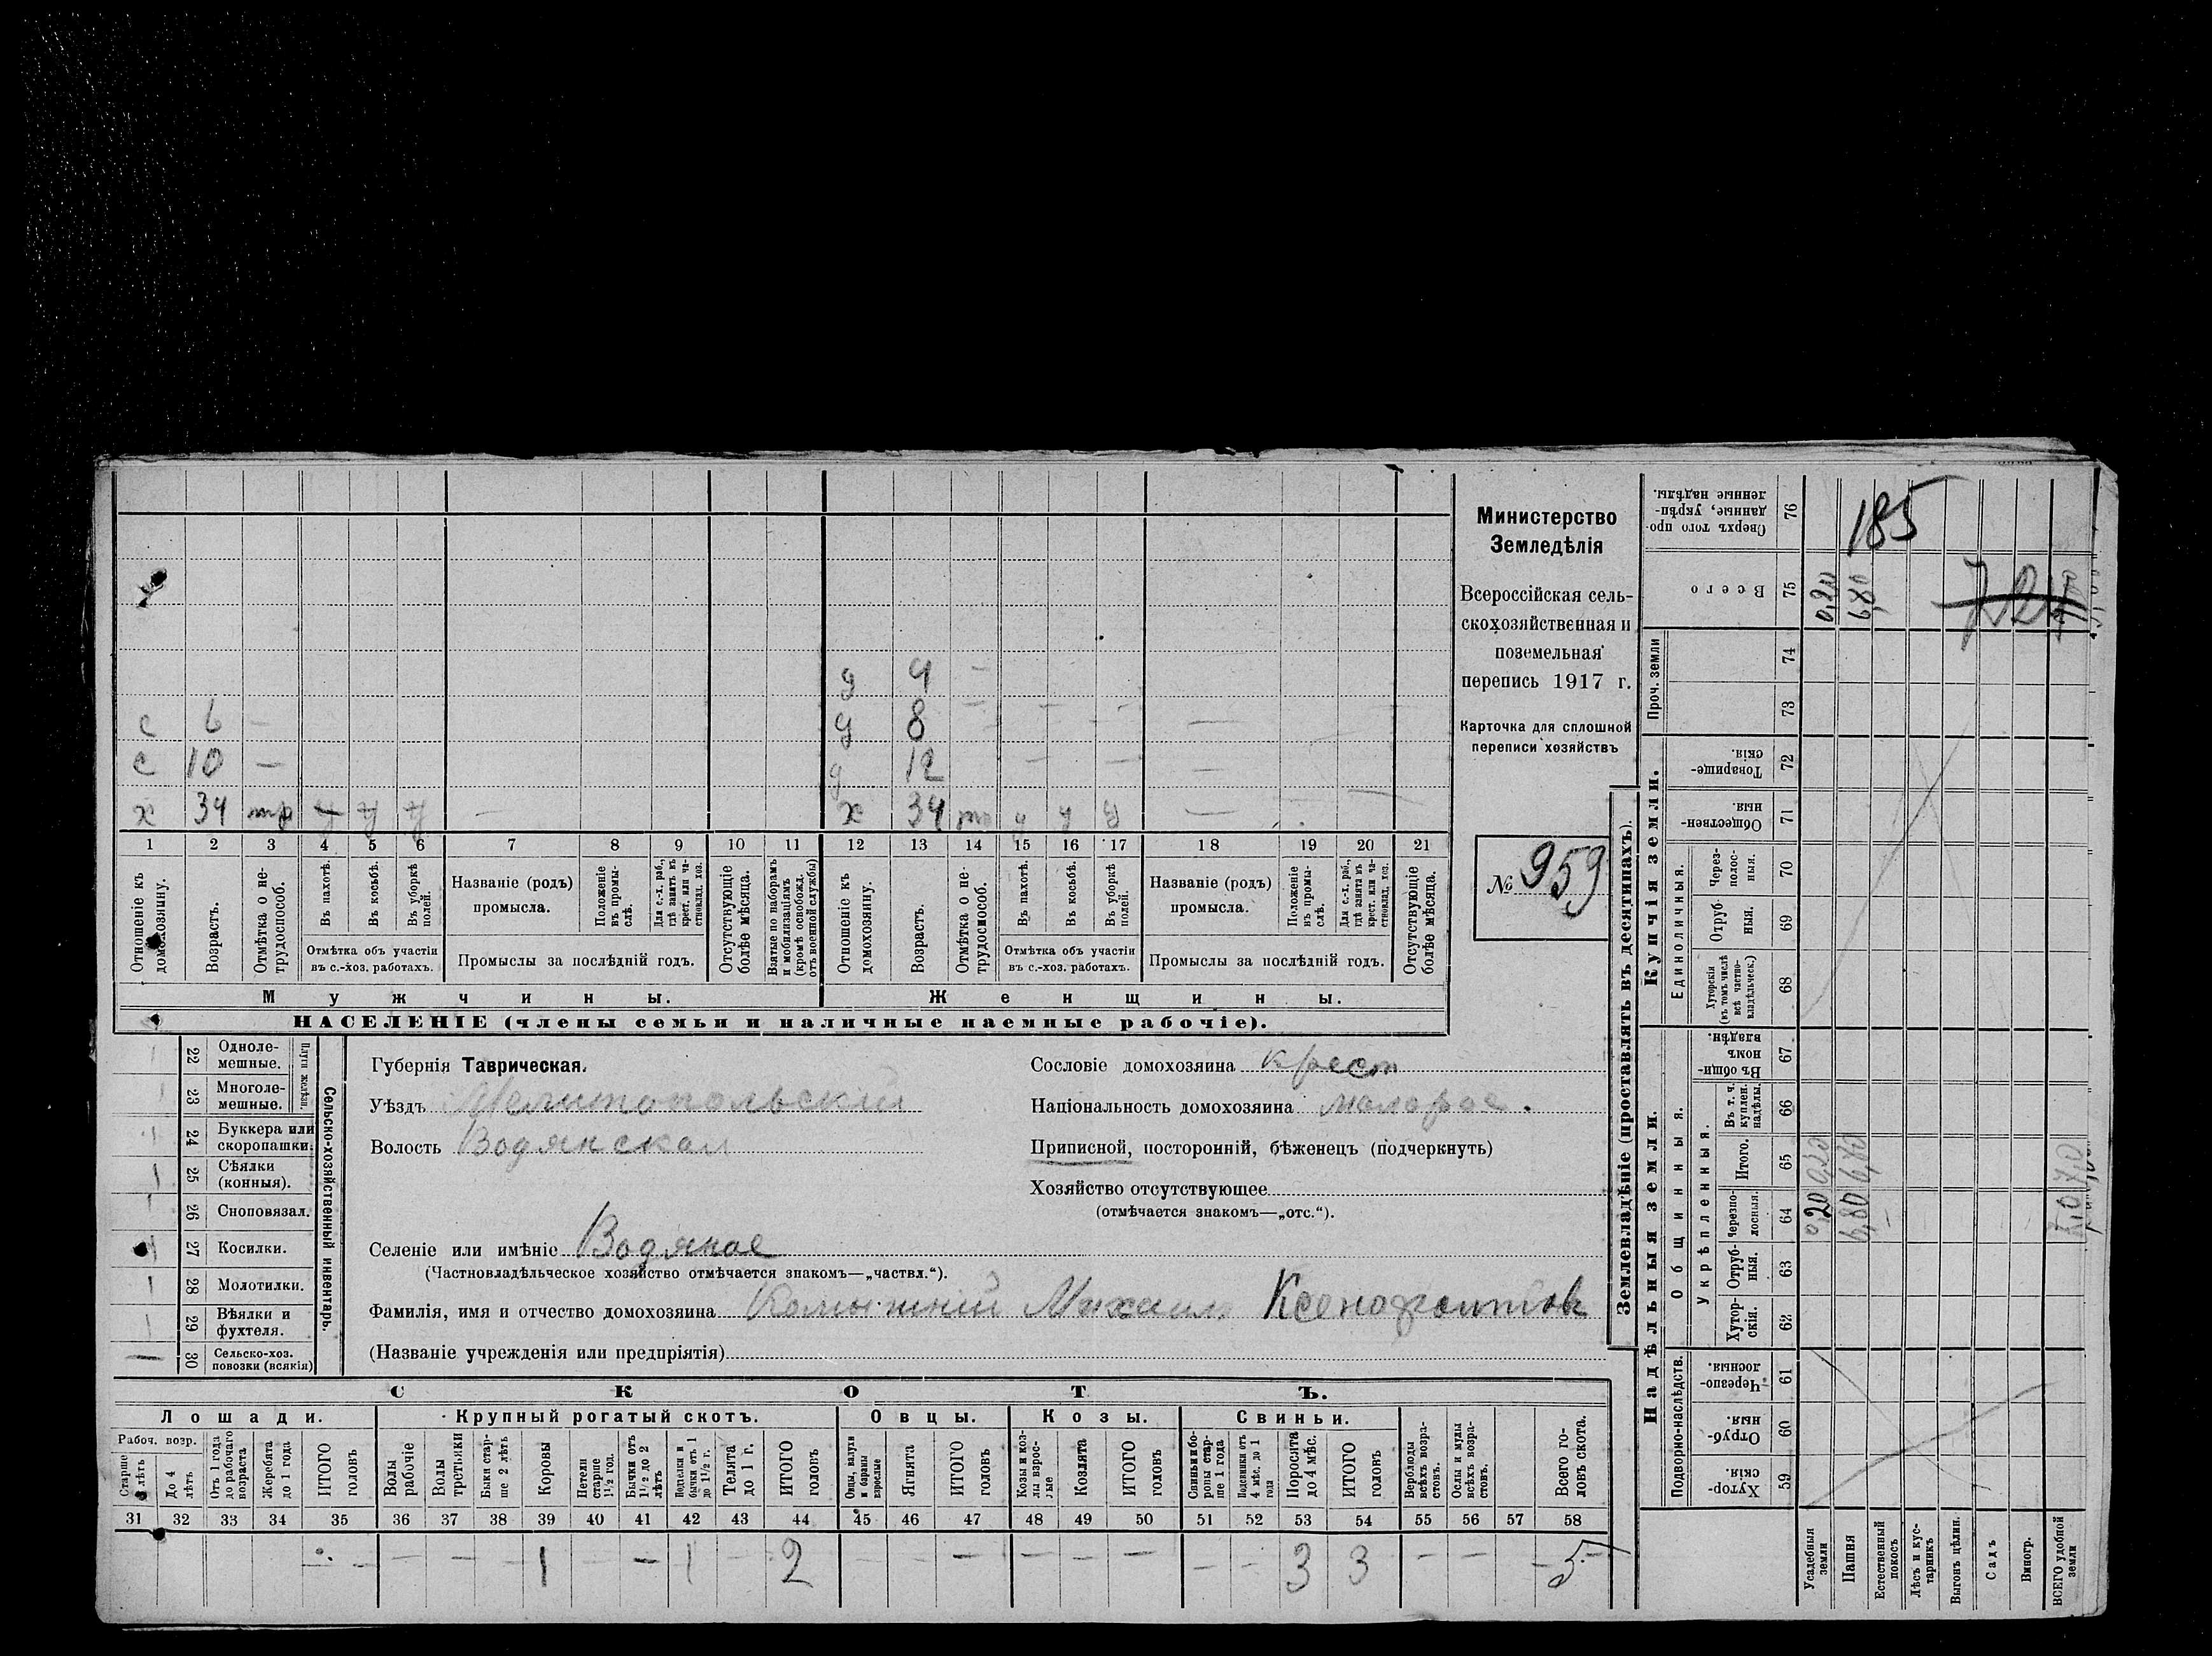 с 6 —
с 10 —
х 34 тр у у у —
д 4 —
д 8
д 12
х 34 у у у —
1 2 3 4 5 6 7 8 9 10 11 12 13 14 15 16 17 18 19 20 21
Отношеніе къ домохозяину.
Возрастъ.
Отмѣтка о нетрудоспособ.
Въ пахотѣ.
Въ косьбѣ.
Въ уборкѣ полей.
Отмѣтка объ участіи въ с.-хоз. работахъ.
Названіе (родъ) промысла.
Положеніе въ промыслѣ.
Для с.-х. раб., гдѣ занятъ въ крест. или частновлад. хоз.
Промыслы за послѣдній годъ.
Отсутствующіе болѣе мѣсяца.
Взятые по наборамъ и мобилизаціямъ (кромѣ освобожд. отъ военной службы)
Отношеніе къ домохозяину.
Возрастъ.
Отмѣтка о нетрудоспособ.
Въ пахотѣ.
Въ косьбѣ.
Въ уборкѣ полей.
Отмѣтка объ участіи въ с.-хоз. работахъ.
Названіе (родъ) промысла.
Положеніе въ промыслѣ.
Для с.-х. раб., гдѣ занята въ крест. или частновлад. хоз.
Промыслы за послѣдній годъ.
Отсутствующіе болѣе мѣсяца.
Мужчины.
Женщины.
НАСЕЛЕНІЕ (члены семьи и наличные наемные рабочіе).
Министерство
Земледѣлія
Всероссійская сель-
скохозяйственная и
поземельная
перепись 1917 г.
Карточка для сплошной
переписи хозяйствъ
№ 959
Сельско-хозяйственный инвентарь.
Плуги желѣзн.
22 Одноле-
мешные.
23 Многоле-
мешные.
24 Буккера или
скоропашки.
25 Сѣялки
(конныя).
26 Сноповязал.
27 Косилки.
28 Молотилки.
29 Вѣялки и
фухтеля.
30 Сельско-хоз.
повозки (всякія)
Губернія Таврическая.
Уѣздъ Мелитопольскій
Волость Водянская
Селеніе или имѣніе Водяное
(Частновладѣльческое хозяйство отмѣчается знакомъ—„частвл.“).
Фамилія, имя и отчество домохозяина Михаил Ксенофонтовъ
(Названіе учрежденія или предпріятія)
Сословіе домохозяина крест
Національность домохозяина малорос.
Приписной, посторонній, бѣженецъ (подчеркнуть)
Хозяйство отсутствующее
(отмѣчается знакомъ—„отс.“).
СКОТЪ.
Лошади.
Рабоч. возр.
До 4 лѣтъ
Отъ 1 года до рабочаго возраста
Жеребята до 1 года
ИТОГО головъ
Крупный рогатый скотъ.
Волы рабочіе
Волы третьяки
Быки старше 2 лѣтъ
Коровы
Петели старше 1½ год.
Бычки отъ 1½ до 2 лѣтъ
Подтелки и бычки отъ 1 до 1½ г.
Телята до 1 г.
ИТОГО головъ
Овцы.
Овцы, валухи и бараны взрослые
Ягнята
ИТОГО головъ
Козы.
Козы и козлы взрослые
Козлята
ИТОГО головъ
Свиньи.
Свиньи и боровы старше 1 года
Подсвинки отъ 4 мѣс. до 1 года
Поросята до 4 мѣс.
ИТОГО головъ
Верблюды всѣхъ возрастовъ.
Ослы и мулы всѣхъ возрастовъ.
Всего головъ скота.
31 32 33 34 35 36 37 38 39 40 41 42 43 44 45 46 47 48 49 50 51 52 53 54 55 56 57 58
— — — 1 — 1 — 2 — — — — — — — — 3 3 — — 5
Землевладѣніе (проставлять въ десятинахъ).
Купчія земли.
Надѣльныя земли.
Сверхъ того проданные, укрѣпленные надѣлы. 76
185
Всего 75
0,20
6,80
Проч. земли 74 73
Товарищескія. 72
Общественныя. 71
Единоличныя.
Черезполосныя. 70
Отрубныя. 69
Хуторскія (въ томъ числѣ всѣ частновладѣльческ.) 68
Общинныя.
Въ общинномъ владѣн. 67
Укрѣпленныя.
Въ т. ч. куплен. надѣлы. 66
Итого. 65
0,20 6,80
черезполосныя. 64
0,20 6,80
Отрубныя. 63
Хуторскія. 62
Подворно-наслѣдств.
Черезполосныя. 61
Отрубныя. 60
Хуторскія. 59
Усадебныя земли
Пашня
Естественный покосъ
Лѣсъ и кустарникъ
Выгонъ цѣлин.
Садъ
Виногр.
ВСЕГО удобной земли